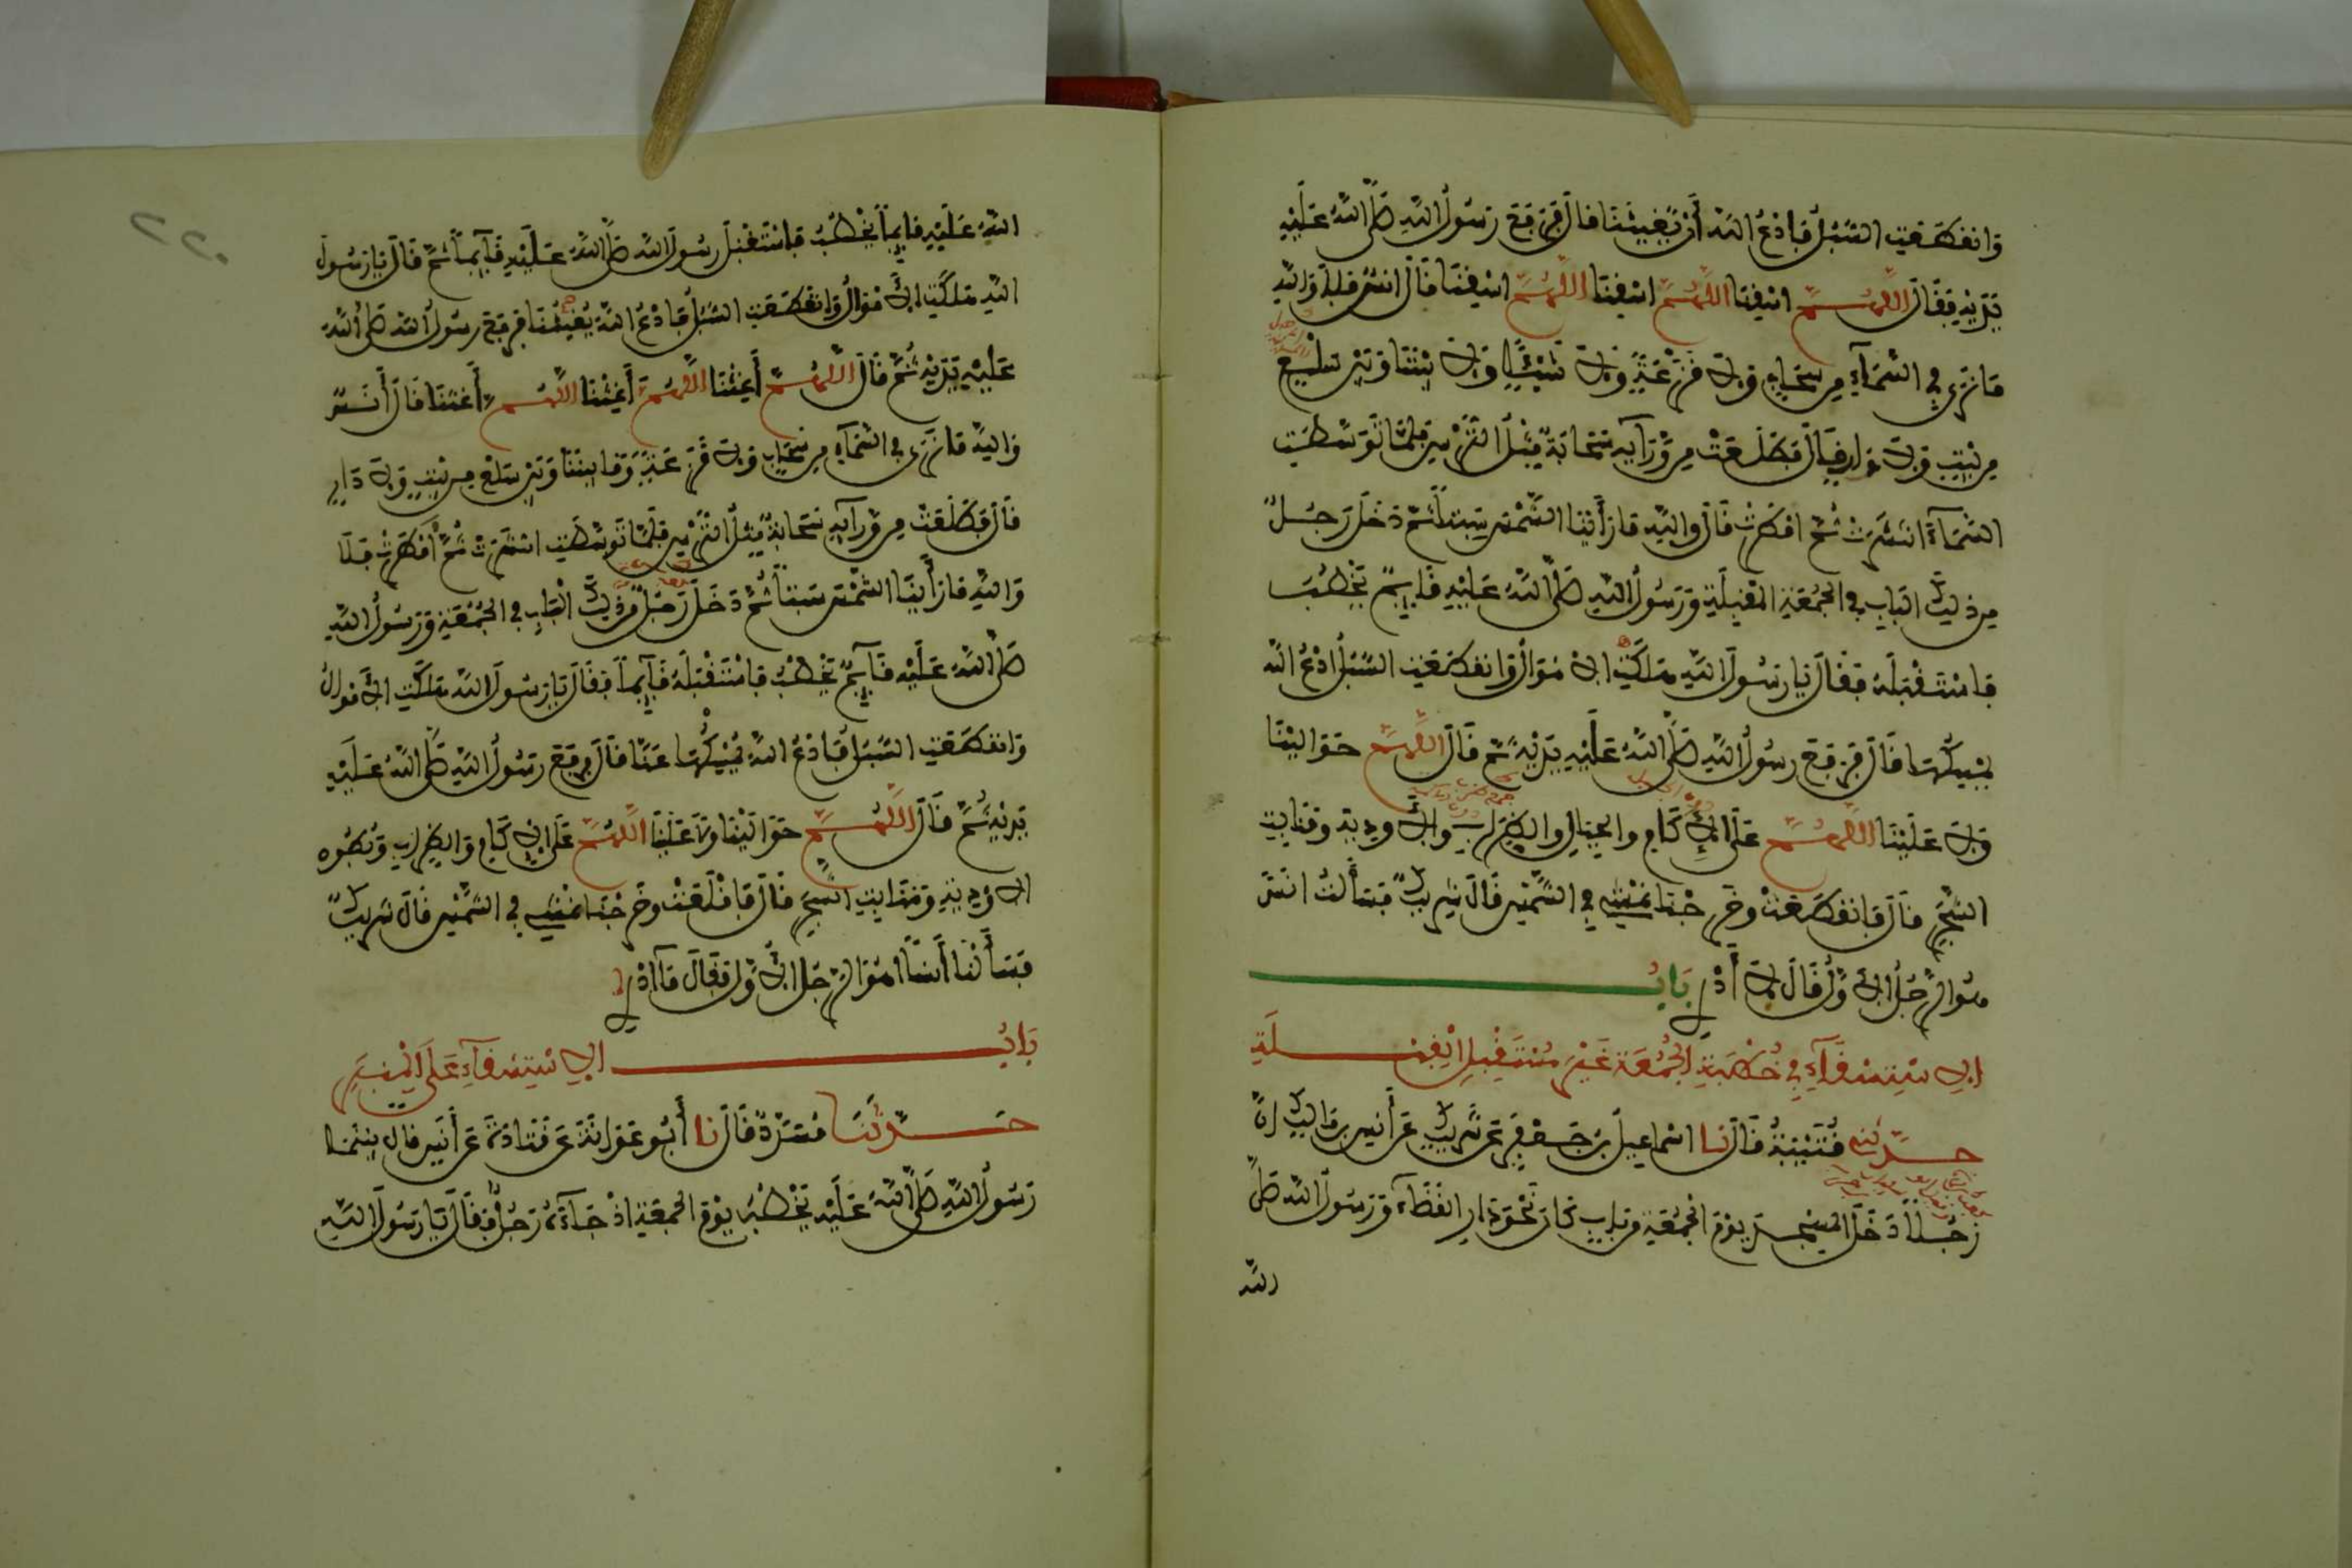 وَانقَطَعَتِ السُّبُلُ فَادْعُ اللَّهَ أَنْ يُغِيثَنَا قَالَ فَرَفَعَ رَسُولُ اللَّهِ صَلَّى اللَّهُ عَلَيْهِ
يَدَيْهِ فَقَالَ اللَّهُمَّ اسْقِنَا اللَّهُمَّ اسْقِنَا اللَّهُمَّ اسْقِنَا قَالَ أَنَسٌ فَلَا وَاللَّهِ
مَا نَرَى فِي السَّمَاءِ مِن سَحَابٍ وَلَا قَزَعَةٍ وَلَا شَيْئًا وَلَا بَيْنَنَا وَبَيْنَ سَلْعٍ
مِن بَيْتٍ وَلَا دَارٍ قَالَ فَطَلَعَتْ مِن وَرَائِهِ سَحَابَةٌ مِثْلُ التُّرْسِ فَلَمَّا تَوَسَّطَتِ
السَّمَاءَ انتَشَرَتْ ثُمَّ أمْطَرَتْ قَالَ وَاللَّهِ مَا رَأَيْنَا الشَّمْسَ سِتًّا ثُمَّ دَخَلَ رَجُلٌ
مِن ذَلِكَ الْبَابِ فِي الْجُمُعَةِ الْمُقْبِلَةِ وَرَسُولُ اللَّهِ صَلَّى اللَّهُ عَلَيْهِ قَائِمٌ يَخْطُبُ
فَاسْتَقْبَلَهُ فَقَالَ يَا رَسُولَ اللَّهِ هَلَكَتِ الْأَمْوَالُ وَانقَطَعَتِ السُّبُلُ ادْعُ اللَّهَ
يُمْسِكُهَا قَالَ فَرَفَعَ رَسُولُ اللَّهِ صَلَّى اللَّهُ عَلَيْهِ يَدَيْهِ ثُمَّ قَالَ اللَّهُمَّ حَوَالَيْنَا
وَلَا عَلَيْنَا اللَّهُمَّ عَلَى الْإِكَامِ وَالْجِبَالِ وَالظِّرَابِ وَالْأَوْدِيَةِ وَمَنَابِتِ
الشَّجَرِ قَالَ فَانقَطَعَتْ وَخَرَجْنَا نَمْشِي فِي الشَّمْسِ قَالَ شَرِيكٌ فَسَأَلْتُ أَنَسَ
هُوَ الرَّجُلُ الْأَوَّلُ قَالَ لَا أَدْرِي بَابُ
الِاسْتِسْقَاءِ فِي خُطْبَةِ الْجُمُعَةِ غَيْرَ مُسْتَقْبِلِ الْقِبْلَةِ
حدثنا قُتَيْبَةُ قَالَ نا اسْمَاعِيلُ بْنُ جَعْفَرٍ عَن شَرِيكٍ عَن أَنَسِ بْنِ مَالِكٍ أَنَّ
رَجُلًا دَخَلَ الْمَسْجِدَ يَوْمَ الْجُمُعَةِ مِن بَابٍ كَانَ نَحْوَ دَارِ الْقَضَاءِ وَرَسُولُ اللَّهِ صَلَّى
الله
٢٢٠
اللَّهُ عَلَيْهِ قَائِمًا يَخْطُبُ فَاسْتَقْبَلَ رَسُولَ اللَّهِ صَلَّى اللَّهُ عَلَيْهِ قَائِمًا ثُمَّ قَالَ يَا رَسُولَ
اللَّهِ هَلَكَتِ الْأَمْوَالُ وَانقَطَعَتِ السُّبُلُ فَادْعُ اللَّهَ يُغِيثُنَا فَرَفَعَ رَسُولُ اللَّهِ صَلَّى اللَّهُ
عَلَيْهِ يَدَيْهِ ثُمَّ قَالَ اللَّهُمَّ أَغِثْنَا اللَّهُمَّ أَغِثْنَا اللَّهُمَّ أَغِثْنَا قَالَ أَنَسٌ
وَاللَّهِ مَا نَرَى فِي السَّمَاءِ مِن سَحَابٍ وَلَا قَزَعَةٍ وَمَا بَيْنَنَا وَبَيْنَ سَلْعٍ مِن بَيْتٍ وَلَا دَارٍ
قَالَ فَطَلَعَتْ مِن وَرَائِهِ سَحَابَةٌ مِثْلُ التُّرْسِ فَلَمَّا تَوَسَّطَتِ انتَشَرَتْ ثُمَّ أَمْطَرَتْ فَلَا
وَاللَّهِ مَا رَأَيْنَا الشَّمْسَ سَبْتًا ثُمَّ دَخَلَ رَجُلٌ مِن ذَلِكَ الْبَابِ فِي الْجُمُعَةِ وَرَسُولُ اللَّهِ
صَلَّى اللَّهُ عَلَيْهِ قَائِمٌ يَخْطُبُ فَاسْتَقْبَلَهُ قَائِمًا فَقَالَ يَا رَسُولَ اللَّهِ هَلَكَتِ الْأَمْوَالُ
وَانقَطَعَتِ السُّبُلُ فَادْعُ اللَّهَ يُمْسِكْهَا عَنَّا قَالَ فَرَفَعَ رَسُولُ اللَّهِ صَلَّى اللَّهُ عَلَيْهِ
يَدَيْهِ ثُمَّ قَالَ اللَّهُمَّ حَوَالَيْنَا وَلَا عَلَيْنَا اللَّهُمَّ عَلَى الْإِكَامِ وَالظِّرَابِ وَبُطُونِ
الْأَوْدِيَةِ وَمَنَابِتِ الشَّجَرِ قَالَ فَأَقْلَعَتْ وَخَرَجْنَا نَمْشِي فِي الشَّمْسِ قَالَ شَرِيكٌ
فَسَأَلْنَا أَنَسًا أَهُوَ الرَّجُلُ الْأَوَّلُ فَقَالَ مَا أَدْرِي
بَابُ الِاسْتِسْقَاءِ عَلَى الْمِنْبَرِ
حَدَّثَنَا مُسَدَّدٌ قَالَ نا أَبُو عَوَانَةَ عَن قَتَادَةَ عَن أَنَسٍ قَالَ بَيْنَمَا
رَسُولُ اللَّهِ صَلَّى اللَّهُ عَلَيْهِ يَخْطُبُ يَوْمَ الْجُمُعَةِ إذْ جَاءَهُ رَجُلٌ فَقَالَ يَا رَسُولَ اللَّهِ